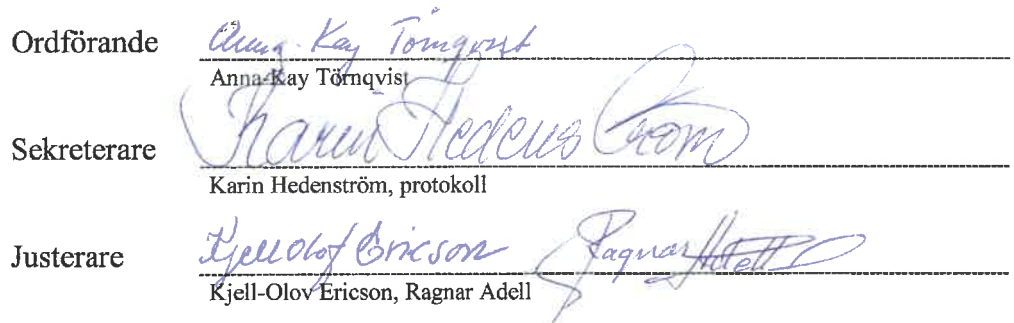 Ordförande Anna-Kay Törnqvist
Anna-Kay Törnqvist
Sekreterare Karin Hedenström
Karin Hedenström, protokoll
Justerare Kjell Olof Ericson Ragnar Adell
Kjell-Olov Ericson, Ragnar Adell